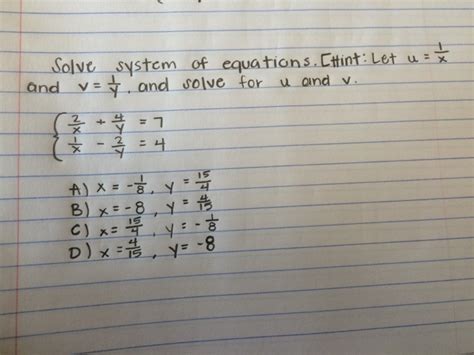 Solve system of equations. [Hint: Let u = 1/x
and v = 1/y, and solve for u and v.
{ 2/x + 4/y = 7
1/x - 2/y = 4
A) x = -1/8, y = 15/4
B) x = -8, y = 4/15
C) x = 15/4, y = -1/8
D) x = 4/15, y = -8